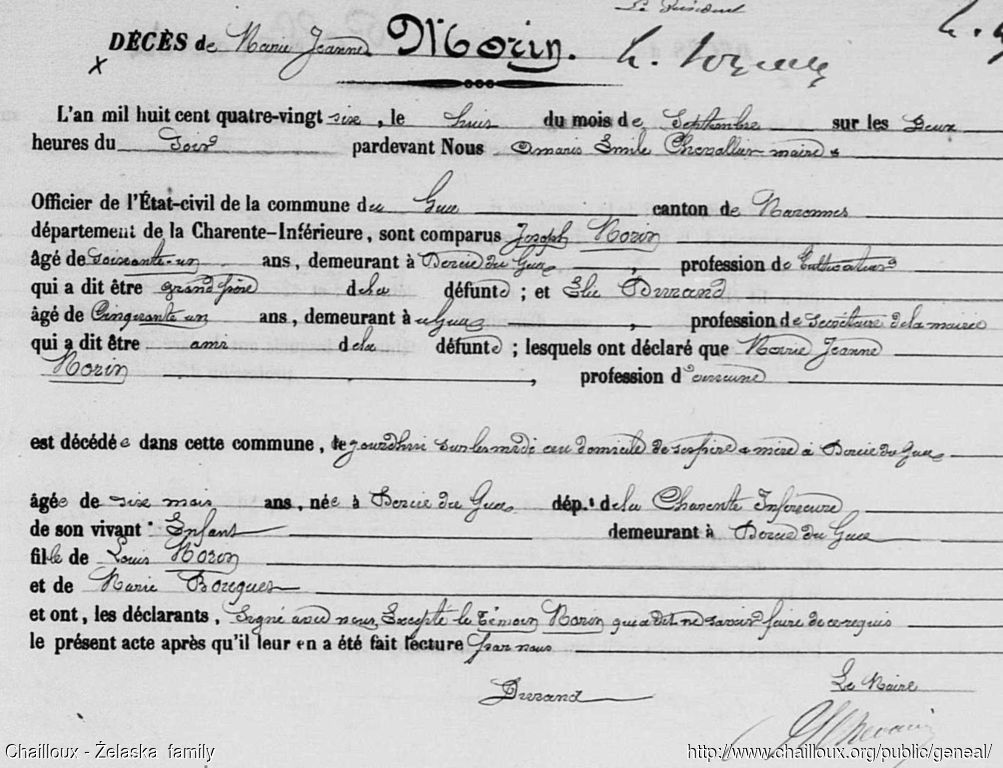 Le Président
DÉCÈS de Marie Jeanne Morin.
L'an mil huit cent quatre-vingt six, le huit du mois de Septembre sur les Deux
heures du Soir pardevant Nous Amaris Emile Chevallier maire
Officier de l'État-civil de la commune du Gua canton de Marennes
département de la Charente-Inférieure, sont comparus Joseph Morin
âgé de soixante-un ans, demeurant à Dercie du Gua, profession de Cultivateur
qui a dit être grand père de la défunte ; et Elie Durand
âgé de Cinquante un ans, demeurant à Gua, profession de secrétaire de la mairie
qui a dit être ami de la défunte ; lesquels ont déclaré que Marie Jeanne
Morin, profession d'aucune
est décédée dans cette commune, le jourdhui sur les midi au domicile de ses père & mère à Dercie du Gua
âgée de six mois ans, née à Dercie du Gua dép.t de la Charente Inférieure
de son vivant Enfant demeurant à Dercie du Gua
fille de Louis Morin
et de Marie
et ont, les déclarants, Signé avec nous, Excepté le témoin Morin qui a dit ne savoir faire de ce requis
le présent acte après qu'il leur en a été fait lecture par nous
Durand Le Maire
Chailloux - Żelaska family http://www.chailloux.org/public/geneal/